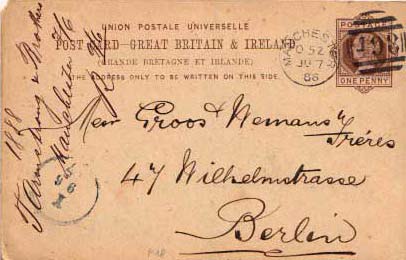 UNION POSTALE UNIVERSELLE
POST CARD—GREAT BRITAIN & IRELAND
(GRANDE BRETAGNE ET IRLANDE)
THE ADDRESS ONLY TO BE WRITTEN ON THIS SIDE.
POSTAGE
ONE PENNY
MANCHESTER
52
JU 7
86
Groos & Nemans
Frères
47 Wilhelmstrasse
Berlin
Armstrong & Brothers
Manchester